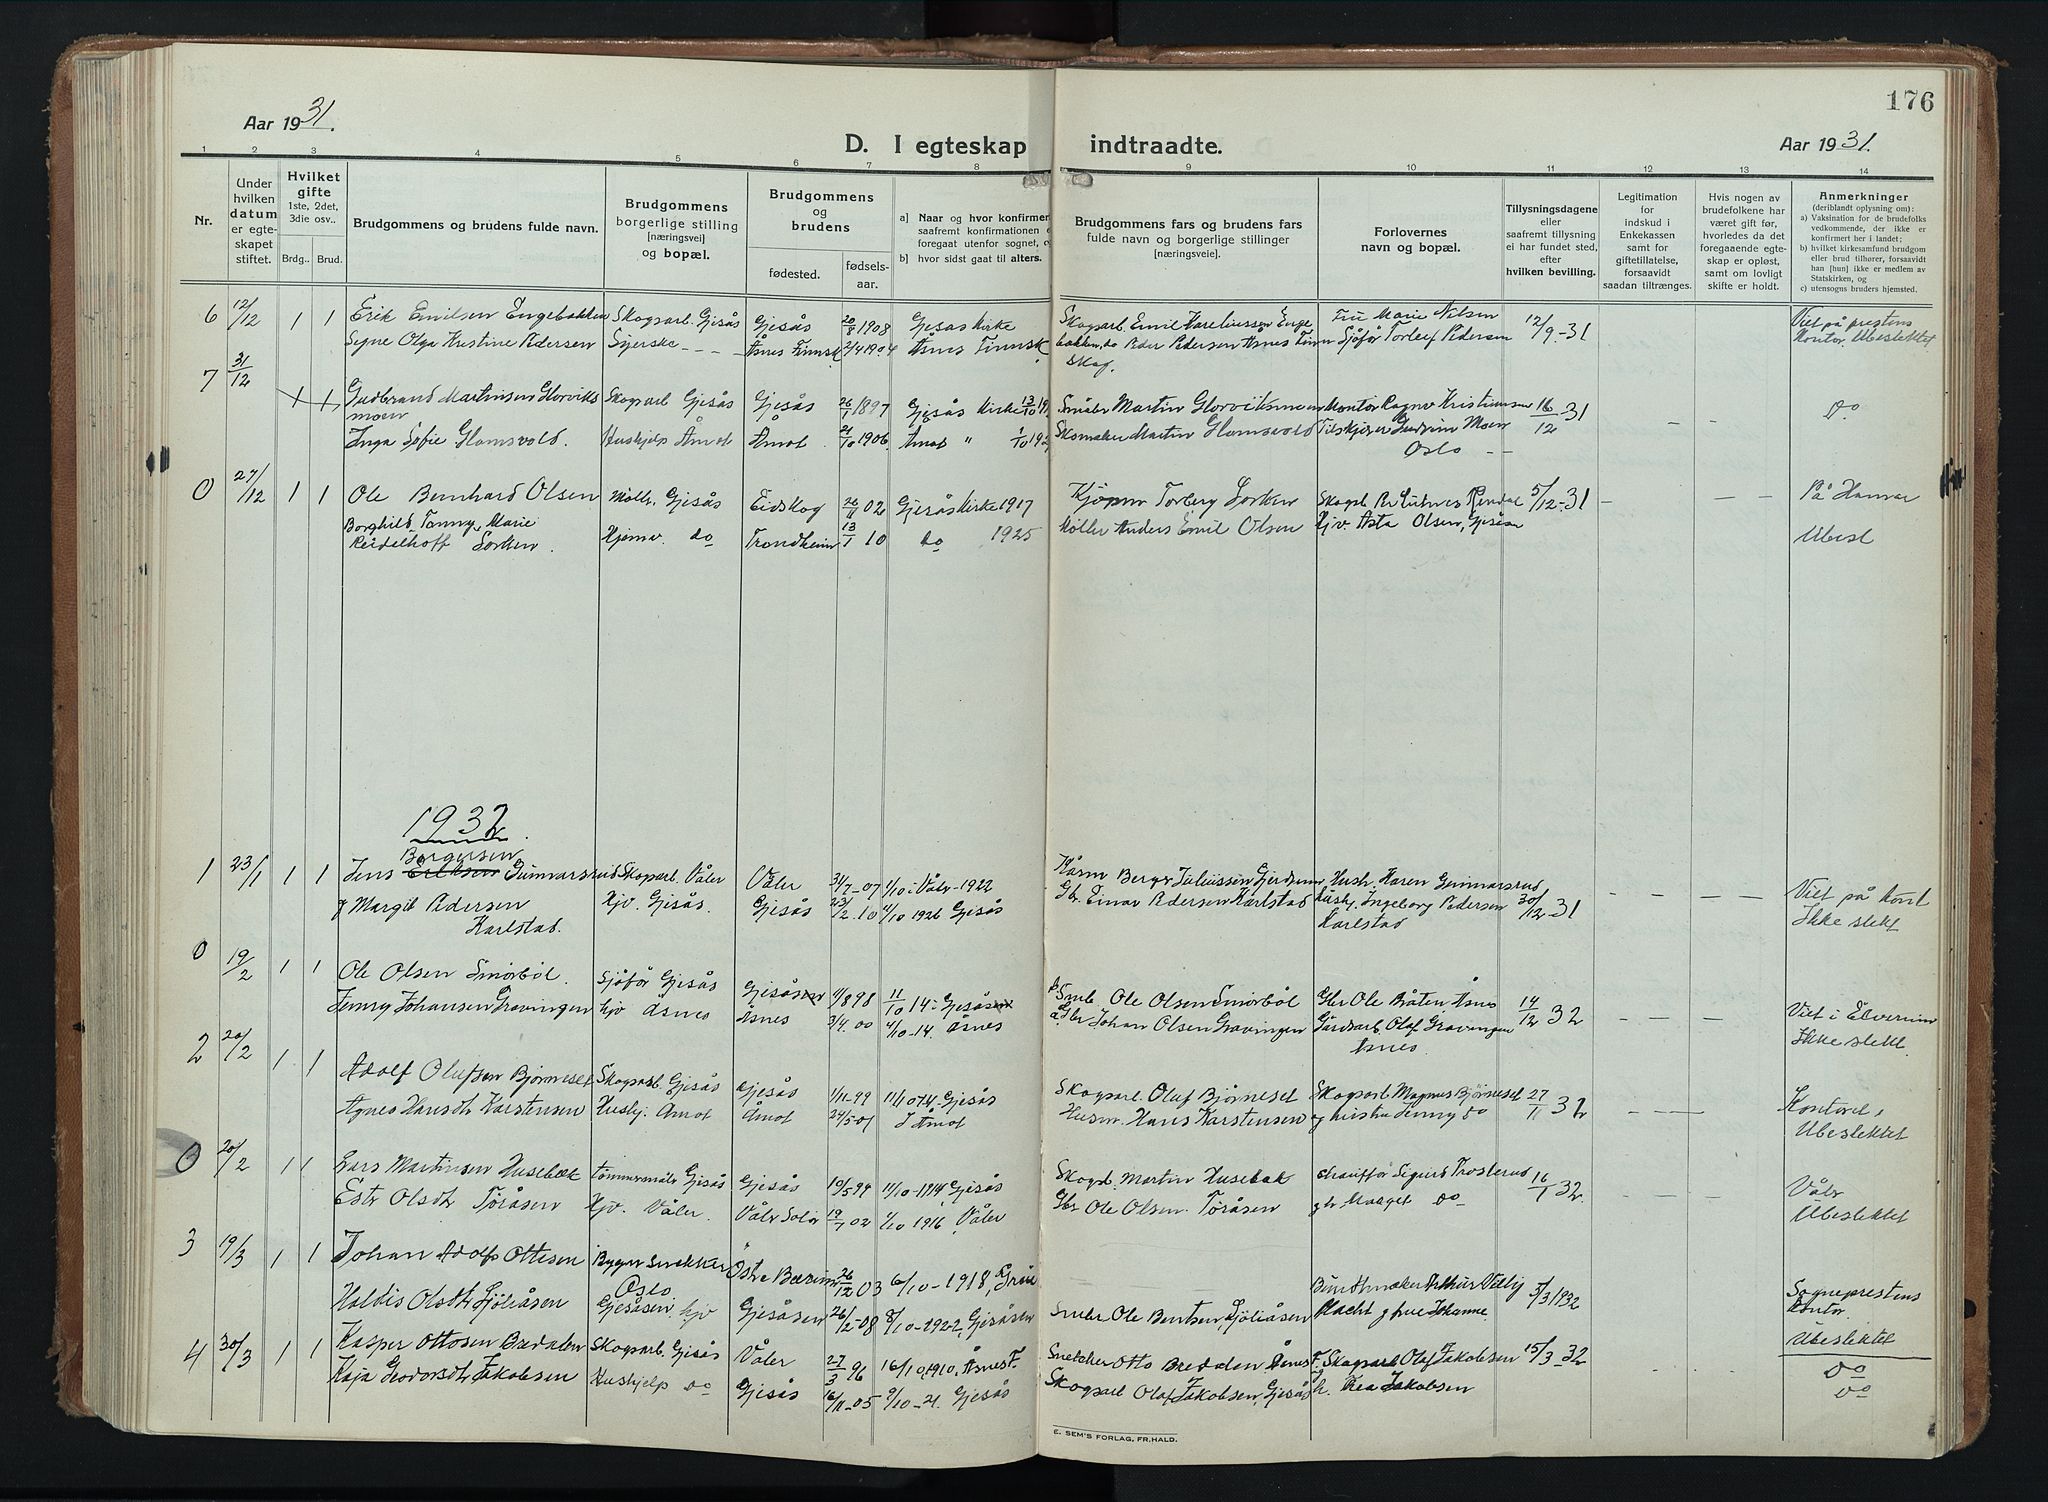 176
Aar 1931.
D. I egteskap indtraadte.
Aar 1931.
1 2 3 4 5 6 7 8 9 10 11 12 13 14
Nr.
Under hvilken datum er egteskapet stiftet.
Hvilket gifte 1ste, 2det, 3die osv..
Brdg.. Brud.
Brudgommens og brudens fulde navn.
Brudgommens borgerlige stilling [næringsvei] og bopæl.
Brudgommens og brudens
fødested. fødsels-aar.
a] Naar og hvor konfirmer
saafremt konfirmationen
foregaat utenfor sognet, o
b] hvor sidst gaat til alters.
Brudgommens fars og brudens fars
fulde navn og borgerlige stillinger
[næringsveie].
Forlovernes
navn og bopæl.
Tillysningsdagene
eller
saafremt tillysning
ei har fundet sted,
efter
hvilken bevilling.
Legitimation
for
indskud i
Enkekassen
samt for
giftetillatelse,
forsaavidt
saadan tiltrænges.
Hvis nogen av
brudefolkene har
været gift før,
hvorledes da det
foregaaende egte-
skap er opløst,
samt om lovlig
skifte er holdt.
Anmerkninger
(deriblandt oplysning om):
a) Vaksination for de brudefolks
vedkommende, der ikke er
konfirmert her i landet;
b) hvilket kirkesamfund brudgom
eller brud tilhører, forsaavidt
han [hun] ikke er medlem av
Statskirken, og
c) utensogns bruders hjemsted.
6 12/12 1 1 Erik Emilsen Engebakken Skogsarb. Gjesås Gjesås 20/8 1908 Gjesås Kirke Skogsarb. Emil Kareliussen Enge Fru Marie Nilsen 12/9-31 Viet på prestens
Signe Olga Kristine Pedersen Syerske - - - Åsnes Finnsk. 2/4 1904 Åsnes Finnsk bakken, do Peder Pedersen Åsnes Finn Sjåfør Torleif Pedersen Kontor. Ubeslektet
skog.
7 31/12 1 1 Gudbrand Martinsen Glorviks Skogsarb Gjesås Gjesås 26/1 1897 Gjesås Kirke 13/10 19 Småbr Martin Glorviksmoen Kontor Ragnv Kristiansen 16/12-31 Do
moen
Inga Sofie Glomsvold. Hushjelp Åmot Åmot 21/10 1906 Åmot " 1/10 192 Skomaker Martin Glomsvold Tilskjærer Gudrun Moen
Oslo - -
0 27/12 1 1 Ole Bernhard Olsen Møller. Gjesås Eidskog 26/11 02 Gjesås Kirke 1917 Kjøpm Torberg Sorken 5/12-31 På Hamar
Borghild Fanny Marie
Reidelhoff Sorken. Hjemv. do Trondheim 13/1 10 do 1925 Møller Anders Emil Olsen Hjv. Asta Olsen, Gjesåsen Ubesl
1932
Borgersen
1 23/1 1 1 Jens Eriksen Gunnarsrud Skogsarb. Våler Våler 31/7-07 1/10 i Våler-1922 Husb. Karen Gunnarsrud 30/12-31 Viet på Kont
g Margit Pedersen Hjv. Gjesås. Gjesås 23/2.10 1/10 1926 Gjesås Gbr. Einar Pedersen Karlstad Ingeborg Pedersen Ikke slekt
Karlstad. Karlstad
0 19/2 1 1 Ole Olsen Smörböl. Sjåför Gjesås Gjesåsen 11/8 98 11/10 14 i Gjesåsen Smbr. Ole Olsen Smörböl Gbr Ole Bråten Åsnes 14/12 32 Viet i Elverum
Jenny Johansen Gravingen hjv Åsnes Åsnes 3/4. 00 4/10-14. Åsnes Gbr Johan Olsen Gravingen Gårdsarb. Olaf Gravingen Ikke slekt.
Åsnes
2 20/2 1 1 Adolf Olufsen Bjørnesel Skogsarb. Gjesås Gjesås 1/11-99 11/10 14-Gjesås Skogsarb. Oluf Bjørnesel Skogsarb Magnus Bjørnesel 27/11 32 Kontoret,
Agnes Hansdtr Karstensen Hushj. Åmot Åmot 24/5-01 I Åmot Husm. Hans Karstensen g hustru Jenny do Ubeslektet
0 20/2 1 1 Lars Martinsen Husebæk Tømmermåler Gjesås Gjesås 19/5 99 11/10-1914 Gjesås Martin Husebak Chauffør Sigurd Trosterud 16/1 32 Våler
Ester Olsdtr Töråsen Hjv. Våler. Våler Solør 19/7 02 1/10 1916 Våler Gbr Ole Olsen. Töråsen do Ubeslektet
3 19/3 1 1 Johan Adolf Ottesen Oslo Østre Bærum 26/12 03 6/10-1918, Grue Arthur 5/3 1932 Sogneprestens
Haldis Olsdtr Sjöliåsen Gjesåsen. hjv Gjesåsen 26/2-08 8/10-1922, Gjesåsen Smbr Ole Bentsen, Sjöliåsen g frue Johanne. Kontor.
Ubeslektet
4 30/3 1 1 Kasper Ottosen Bredalen Skogsarb. Gjesås Våler 27/3 96 16/10 1910, Åsnes F. Snekker Otto Bredalen Åsnes F. Skogsarb Olaf Jakobsen 15/3-32 Do
Kaja Teodorsdtr Jakobsen Hushjelp do Gjesås 16/11-05 9/10-21. Gjesås Skogsarb Olaf Jakobsen, Gjesås h. Thea Jakobsen Do
E. SEM'S FORLAG, FR.HALD.